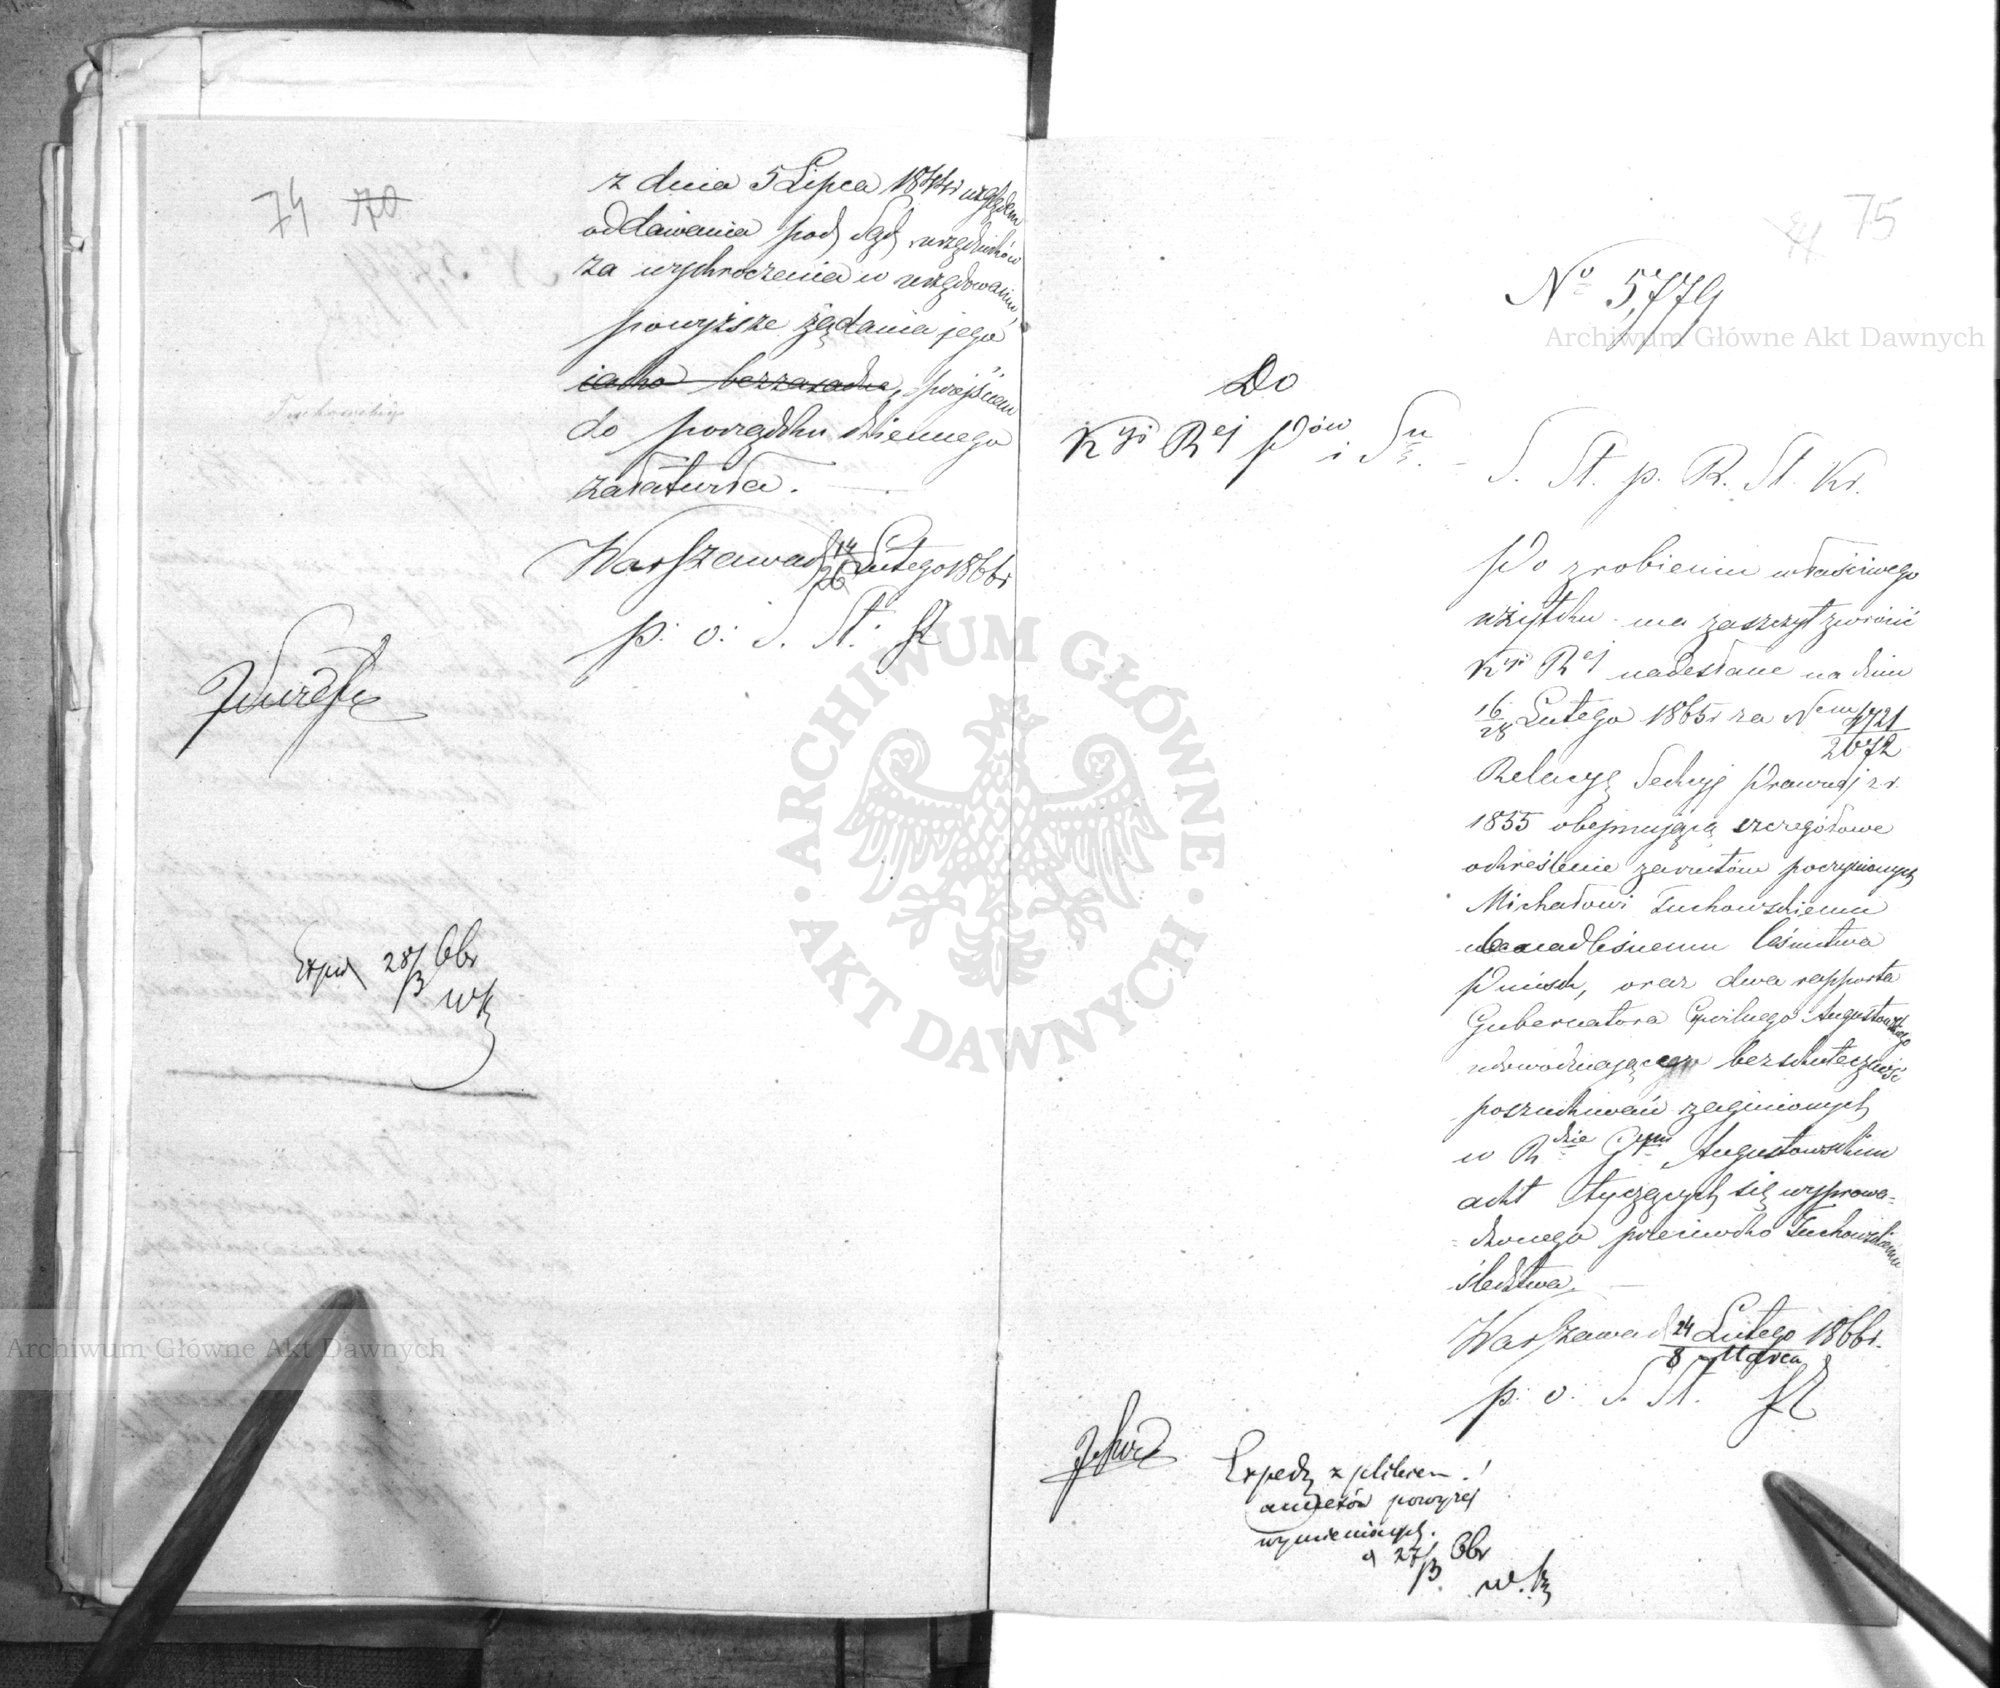 74 70
z dnia 5 Lipca 1844 r względem
oddawania pod Sąd urzędników
za wykroczenia w urzędowaniu,
powyższe żądania jego
iako bezzasadne, przejściem
do porządku dziennego
załatwiła.
Warszawa d 14/26 Lutego 1866 r
p: o: S. St:
28/3 66 r
75
No 5,779
Do
Kyi Rej Pów i Su
S. St. p. R. St. Kr.
Po zrobieniu właściwego
użytku ma zaszczyt zwrócić
Kyi Rej nadesłane na dniu
16/28 Lutego 1865 r za Nem 1721/2672
Relacyą Sekcyi Prawnej z r.
1855 obejmującą szczegółowe
określenie zarzutów poczynionych
Michałowi Tuchowskiemu
nadleśnemu leśnictwa
Puńsk, oraz dwa rapporta
Gubernatora Cywilnego Augustowskiego
udowadniające bezskuteczność
poszukiwań zaginionych
w Rdzie Gym Augustowskim
akt tyczących się wyprowa-
-dzonego przeciwko Tuchowskiemu
śledztwa.
Warszawa d 24 Lutego/8 Marca 1866 r.
p: o: S. St.
Exped z plikiem
annexów powyżej
wymienionych.
d 27/3 66 r
Archiwum Główne Akt Dawnych
Archiwum Główne Akt Dawnych
ARCHIWUM GŁÓWNE
AKT DAWNYCH